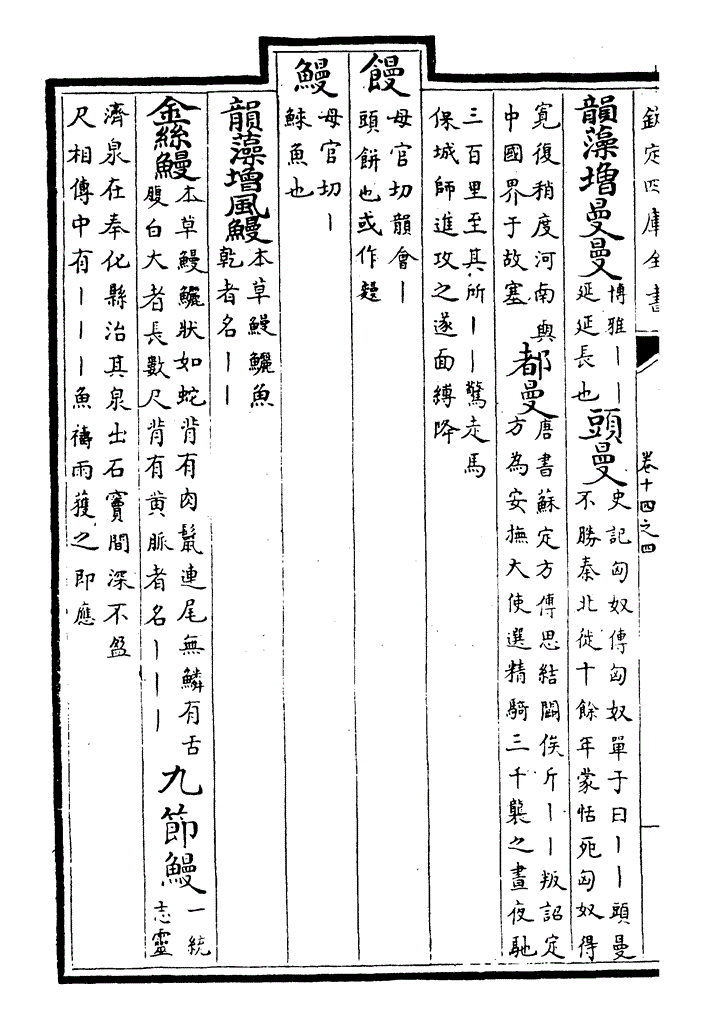 欽定四庫全書
卷十四之四
韻藻増曼曼博雅丨丨延延長也頭曼史記匈奴傳匈奴單于曰丨丨頭曼不勝秦北徙十餘年蒙恬死匈奴得
寛復稍度河南與中國界于故塞都曼唐書蘇定方傳思結闕俟斤丨丨叛詔定方為安撫大使選精騎三千襲之晝夜馳
三百里至其所丨丨驚走馬保城師進攻之遂面縛降
饅母官切韻會丨頭餅也或作䊡
鰻母官切丨鯠魚也
韻藻增風鰻本草鰻鱺魚乾者名丨丨
金絲鰻本草鰻鱺狀如蛇背有肉鬛連尾無鱗有舌腹白大者長數尺背有黄脈者名丨丨丨九節鰻一統志靈
濟泉在奉化縣治其泉出石竇間深不盈尺相傳中有丨丨丨魚禱雨獲之即應